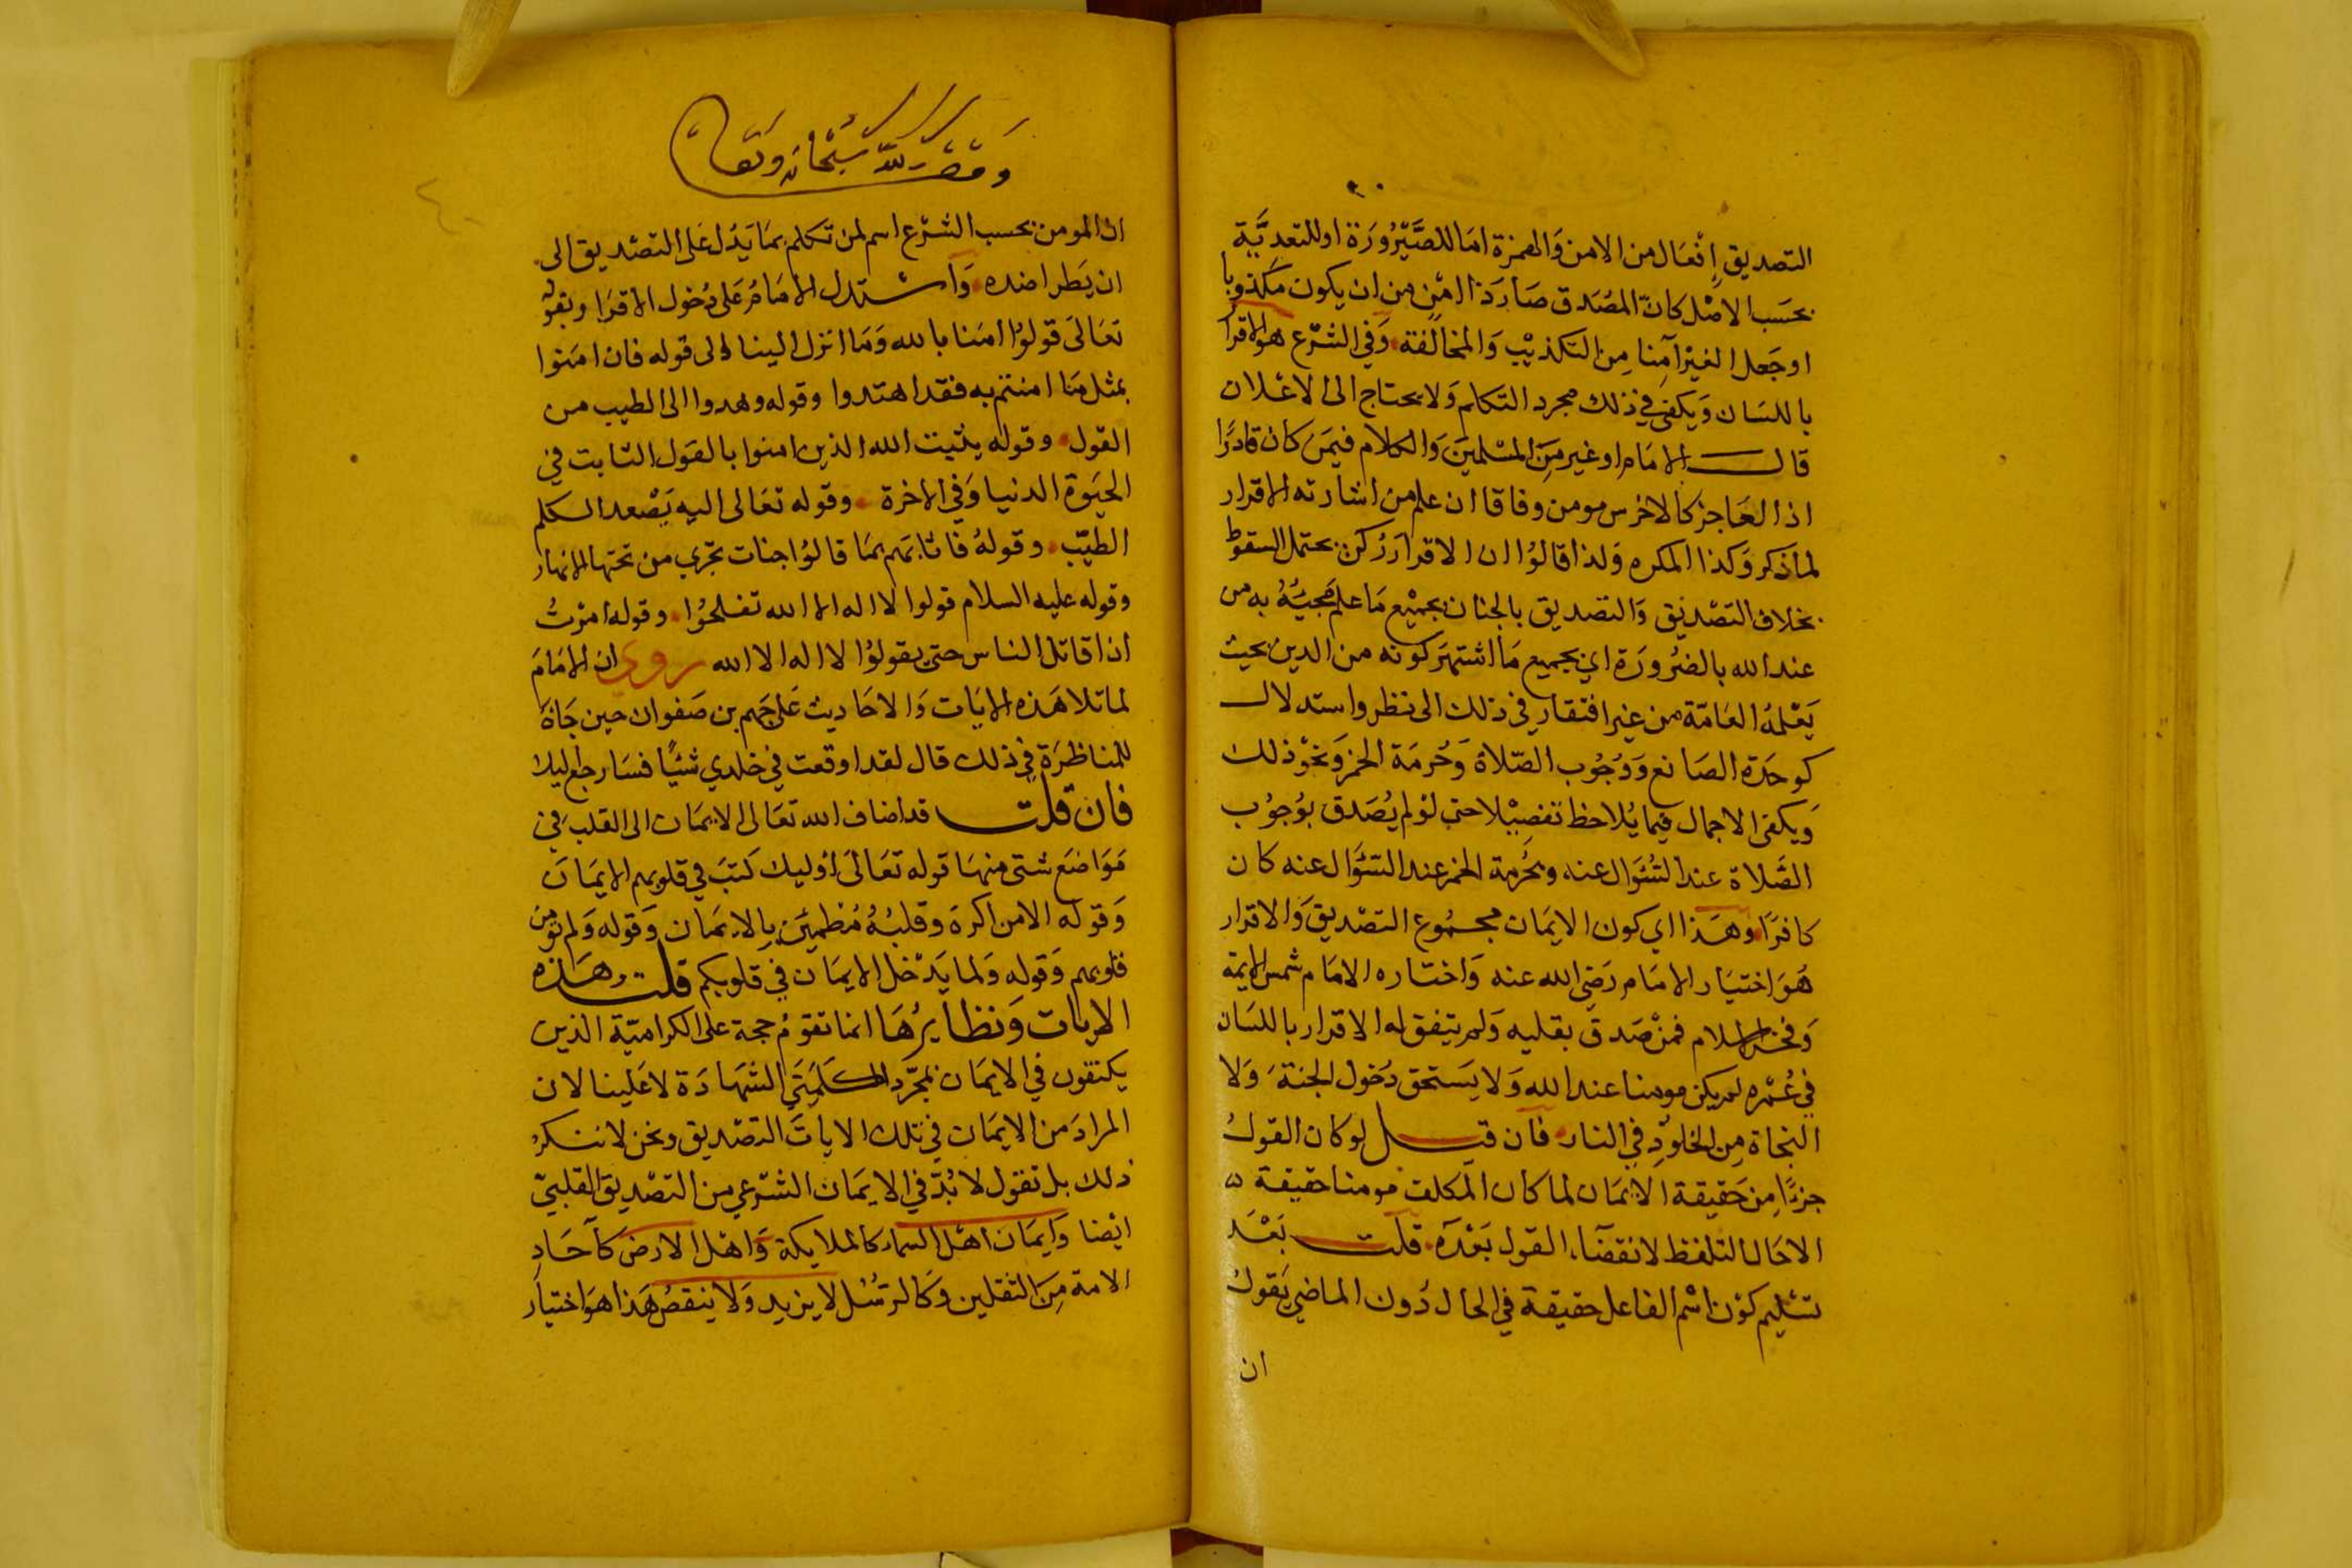 التصديق إفعال من الامن والهمزة اما للصيرورة او للتعدية
بحسب الاصل كانّ المصدق صار ذا امن من ان يكون مكذوبا
او جعل الغير آمنا من التكذيب والمخالفة وفي الشرع هو الاقرا
باللسان ويكفي في ذلك مجرد التكلم ولا يحتاج الى الاعلان
قال الامام او غير من المسلمين والكلام فيمن كان قادرا
اذ العاجز كالاخرس مومن وفاقا ان علم من اشارته الاقرار
لما ذكر وكذا المكره ولذا قالوا ان الاقرار ركن يحتمل السقوط
بخلاف التصديق والتصديق بالجنان بجميع ما علم مجيئه به من
عند الله بالضرورة اي بجميع ما اشتهر كونه من الدين بحيث
يعلمه العامة من غير افتقار في ذلك الى نظر واستدلال
كوحدة الصانع ووجوب الصلاة وحرمة الخمر ونحو ذلك
ويكفى الاجمال فيما يلاحظ تفصيلا حتى لو لم يصدق بوجوب
الصلاة عند السؤال عنه وبحرمة الخمر عند السؤال عنه كان
كافرا وهذا اي كون الايمان مجموع التصديق والاقرار
هو اختيار الامام رضي الله عنه واختاره الامام شمس الايمة
وفخر الاسلام فمن صدق بقلبه ولم يتفق له الاقرار باللسان
في عمره لم يكن مومنا عند الله ولا يستحق دخول الجنة ولا
النجاة من الخلود في النار فان قيل لو كان القول
جزءا من حقيقة الايمان لما كان المكلف مومنا حقيقة
الا حال التلفظ لانقضاء القول بعده قلت بعد
تسليم كون اسم الفاعل حقيقة في الحال دون الماضي يقول
ان
وقف لله سبحانه وتعالى
ان المومن بحسب الشرع اسم لمن تكلم بما يدل على التصديق الى
ان يطرا ضده واستدل الامام على دخول الاقرا وبقوله
تعالى قولوا امنا بالله وما انزل الينا الى قوله فان امنوا
بمثل ما امنتم به فقد اهتدوا وقوله وهدوا الى الطيب من
القول وقوله يثبت الله الذين امنوا بالقول الثابت في
الحيوة الدنيا وفي الاخرة وقوله تعالى اليه يصعد الكلم
الطيب وقوله فاثابهم بما قالوا جنات تجري من تحتها الانهار
وقوله عليه السلام قولوا لا اله الا الله تفلحوا وقوله امرت
ان اقاتل الناس حتى يقولوا لا اله الا الله روي ان الامام
لما تلا هذه الايات والاحاديث على جهم بن صفوان حين جاة
للمناظرة في ذلك قال لقد اوقعت في خلدي شيئا فسارجع ليلا
فان قلت قد اضاف الله تعالى الايمان الى القلب في
مواضع شتى منها قوله تعالى اوليك كتب في قلوبهم الايمان
وقوله الا من اكره وقلبه مطمئن بالايمان وقوله ولم تومن
قلوبهم وقوله ولما يدخل الايمان في قلوبكم قلت هذه
الايات ونظايرها انما تقوم حجة على الكرامية الذين
يكتفون في الايمان بمجرد كلمتي الشهادة لا علينا لان
المراد من الايمان في تلك الايات التصديق ونحن لا ننكر
ذلك بل تقول لا بد في الايمان الشرعي من التصديق القلبي
ايضا وايمان اهل السماء كالملايكة واهل الارض كآحاد
الامة من الثقلين وكالرسل لا يزيد ولا ينقص هذا هو اختيار